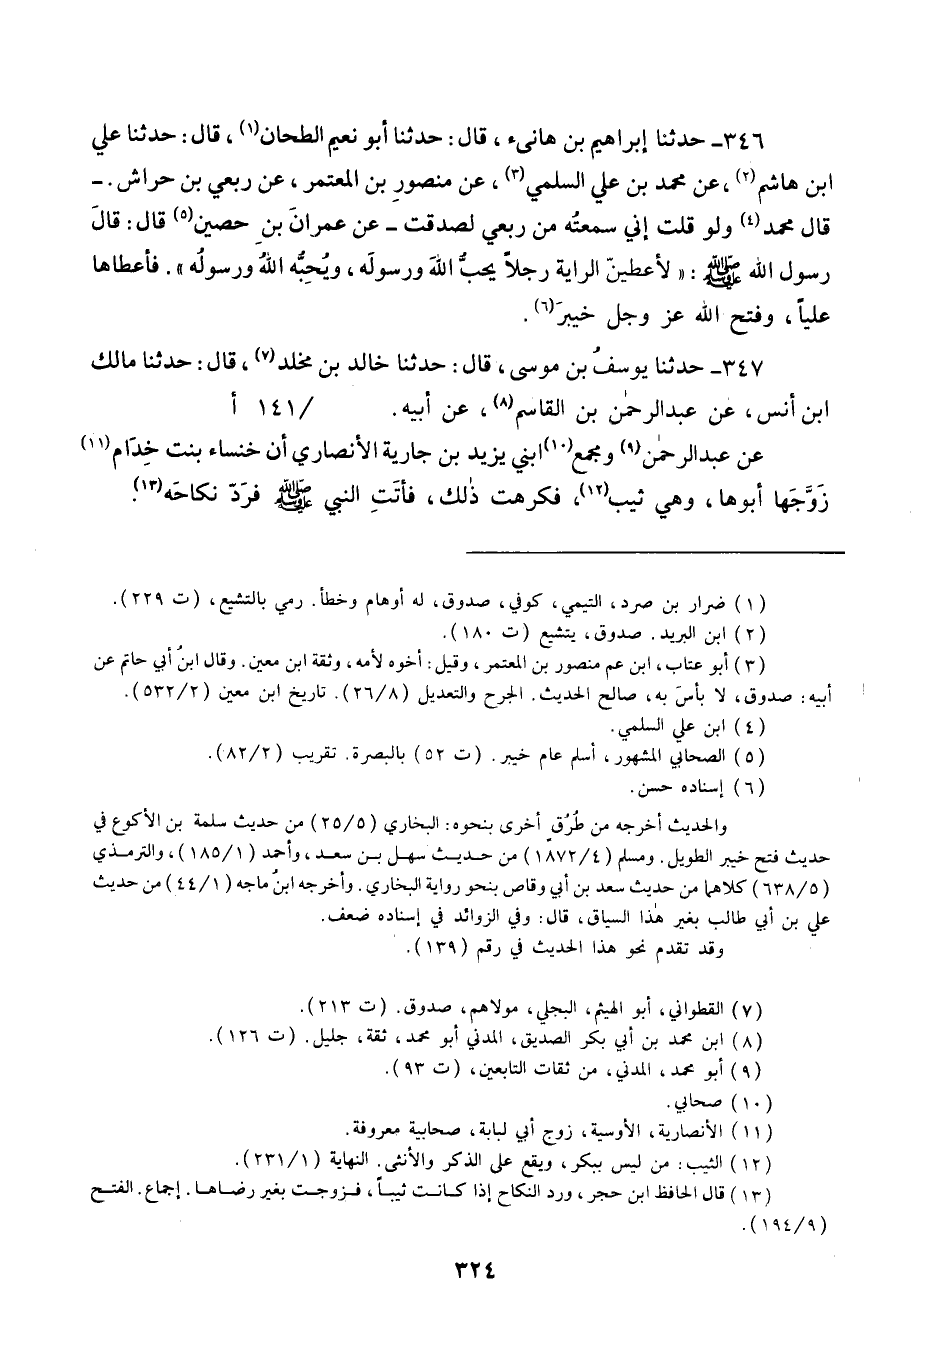 ٣٤٦ـ حدثنا إبراهيم بن هانىء ، قال : حدثنا أبو نعيم الطحان(١) ، قال : حدثنا علي
ابن هاشم(٢) ، عن محمد بن علي السلمي(٣) ، عن منصورِ بن المعتمر ، عن ربعي بن حراش . ـ
قال محمد(٤) ولو قلت إني سمعتُه من ربعي لصدقت ـ عن عمرانَ بنِ حصين(٥) قال : قالَ
رسول الله ﷺ : « لأعطينّ الراية رجلاً يحبُّ اللهَ ورسولَه ، ويُحِبُّه اللهُ ورسولُه » . فأعطاها
علياً ، وفتح الله عز وجل خيبرَ(٦) .
٣٤٧ـ حدثنا يوسفُ بن موسى ، قال : حدثنا خالد بن مخلد(٧) ، قال : حدثنا مالك
ابن أنس ، عن عبدالرحمٰن بن القاسم(٨) ، عن أبيه . /١٤١ أ
عن عبدالرحمٰن(٩) ومجمع(١٠) ابني يزيد بن جارية الأنصاري أن خنساء بنت خِدَام(١١)
زَوَّجَها أبوها ، وهي ثيب(١٢) ، فكرهت ذٰلك ، فأتَتِ النبي ﷺ فرَدّ نكاحَه(١٣) .
(١) ضرار بن صرد ، التيمي ، كوفي ، صدوق ، له أوهام وخطأ . رمي بالتشيع ، (ت ٢٢٩) .
(٢) ابن البريد . صدوق ، يتشيع (ت ١٨٠) .
(٣) أبو عتاب ، ابن عم منصور بن المعتمر ، وقيل : أخوه لأمه ، وثقة ابن معين . وقال ابنُ أبي حاتم عن
أبيه : صدوق ، لا بأسَ به ، صالح الحديث . الجرح والتعديل (٢٦/٨) . تاريخ ابن معين (٥٣٢/٢) .
(٤) ابن علي السلمي .
(٥) الصحابي المشهور ، أسلم عام خيبر . (ت ٥٢) بالبصرة . تقريب (٨٢/٢) .
(٦) إسناده حسن .
والحديث أخرجه من طُرُقٍ أخرى بنحوه : البخاري (٢٥/٥) من حديث سلمة بن الأكوع في
حديث فتح خيبر الطويل . ومسلم (١٨٧٢/٤) من حديث سهل بن سعد ، وأحمد (١٨٥/١) ، والترمذي
(٦٣٨/٥) كلاهما من حديث سعد بن أبي وقاص بنحو رواية البخاري . وأخرجه ابنُ ماجه (٤٤/١) من حديث
علي بن أبي طالب بغير هٰذا السياق ، قال : وفي الزوائد في إسناده ضعف .
وقد تقدم نحو هذا الحديث في رقم (١٣٩) .
(٧) القطواني ، أبو الهيثم ، البجلي ، مولاهم ، صدوق . (ت ٢١٣) .
(٨) ابن محمد بن أبي بكر الصديق ، المدني أبو محمد ، ثقة ، جليل . (ت ١٢٦) .
(٩) أبو محمد ، المدني ، من ثقات التابعين ، (ت ٩٣) .
(١٠) صحابي .
(١١) الأنصارية ، الأوسية ، زوج أبي لبابة ، صحابية معروفة .
(١٢) الثيب : من ليس ببكر ، ويقع على الذكر والأنثى . النهاية (٢٣١/١) .
(١٣) قال الحافظ ابن حجر ، ورد النكاح إذا كانت ثيباً ، فزوجت بغير رضاها . إجماع . الفتح
(١٩٤/٩) .
٣٢٤